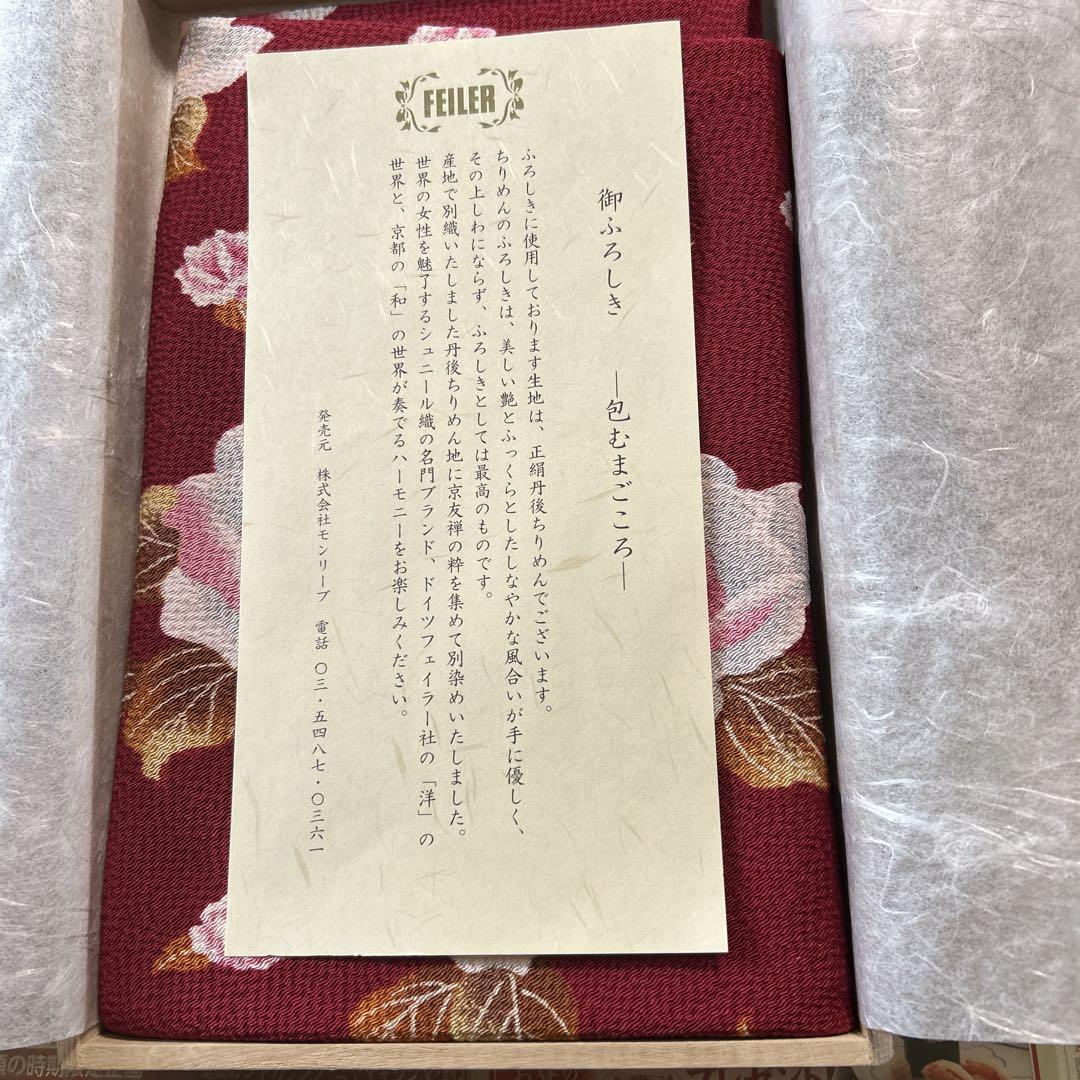 FEILER
御ふろしき ―包むまごころ―
ふろしきに使用しております生地は、正絹丹後ちりめんでございます。
ちりめんのふろしきは、美しい艶とふっくらとしたしなやかな風合いが手に優しく、
その上しわにならず、ふろしきとしては最高のものです。
産地で別織いたしました丹後ちりめん地に京友禅の粋を集めて別染めいたしました。
世界の女性を魅了するシュニール織の名門ブランド、ドイツフェイラー社の「洋」の
世界と、京都の「和」の世界が奏でるハーモニーをお楽しみください。
発売元 株式会社モンリーブ 電話 〇三・五四八七・〇三六一
の時期限定企画